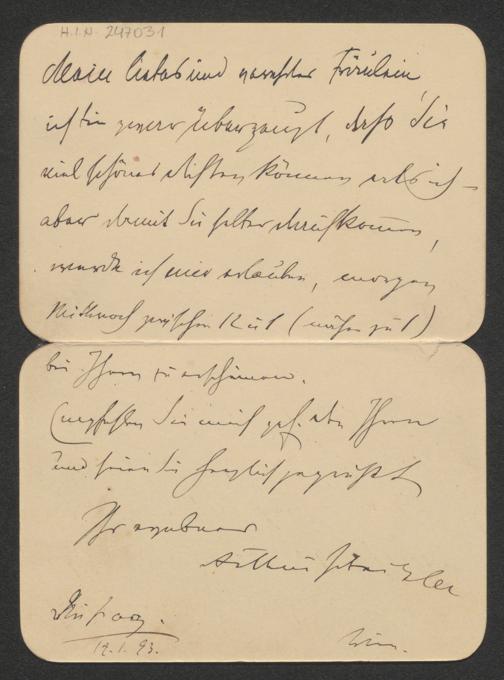 H.I.N. 247031
Mein liebes und verehrtes Fräulein
ich bin zwar überzeugt, daß Sie
viel schöner dichten können als ich –
aber damit Sie selber draufkommen,
werde ich mir erlauben, morgen
Mittwoch zwischen 12 u 1 (näher zu 1)
bei Ihnen zu erscheinen.
Empfehlen Sie mich gef. den Ihren
und seien Sie herzlich gegrüßt
Ihr ergebener
Arthur Schnitzler
Dinstag.
1.93.
Wien.